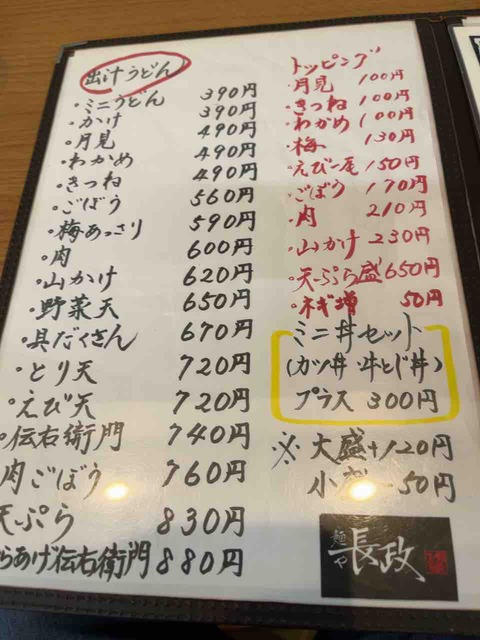 出汁うどん
・ミニうどん 390円
・かけ 390円
・月見 490円
・わかめ 490円
・きつね 490円
・ごぼう 560円
・梅あっさり 590円
・肉 600円
・山かけ 620円
・野菜天 650円
・具だくさん 670円
・とり天 720円
・えび天 720円
・伝右衛門 740円
肉ごぼう 760円
天ぷら 830円
らあげ伝右衛門 880円
トッピング
・月見 100円
・きつね 100円
・わかめ 100円
・梅 130円
・えび一尾 150円
・ごぼう 170円
・肉 210円
・山かけ 230円
・天ぷら盛 650円
・ネギ増 50円
ミニ丼セット
(カツ丼・牛とじ丼)
プラス 300円
※大盛+120円
小盛-50円
麺や
長政